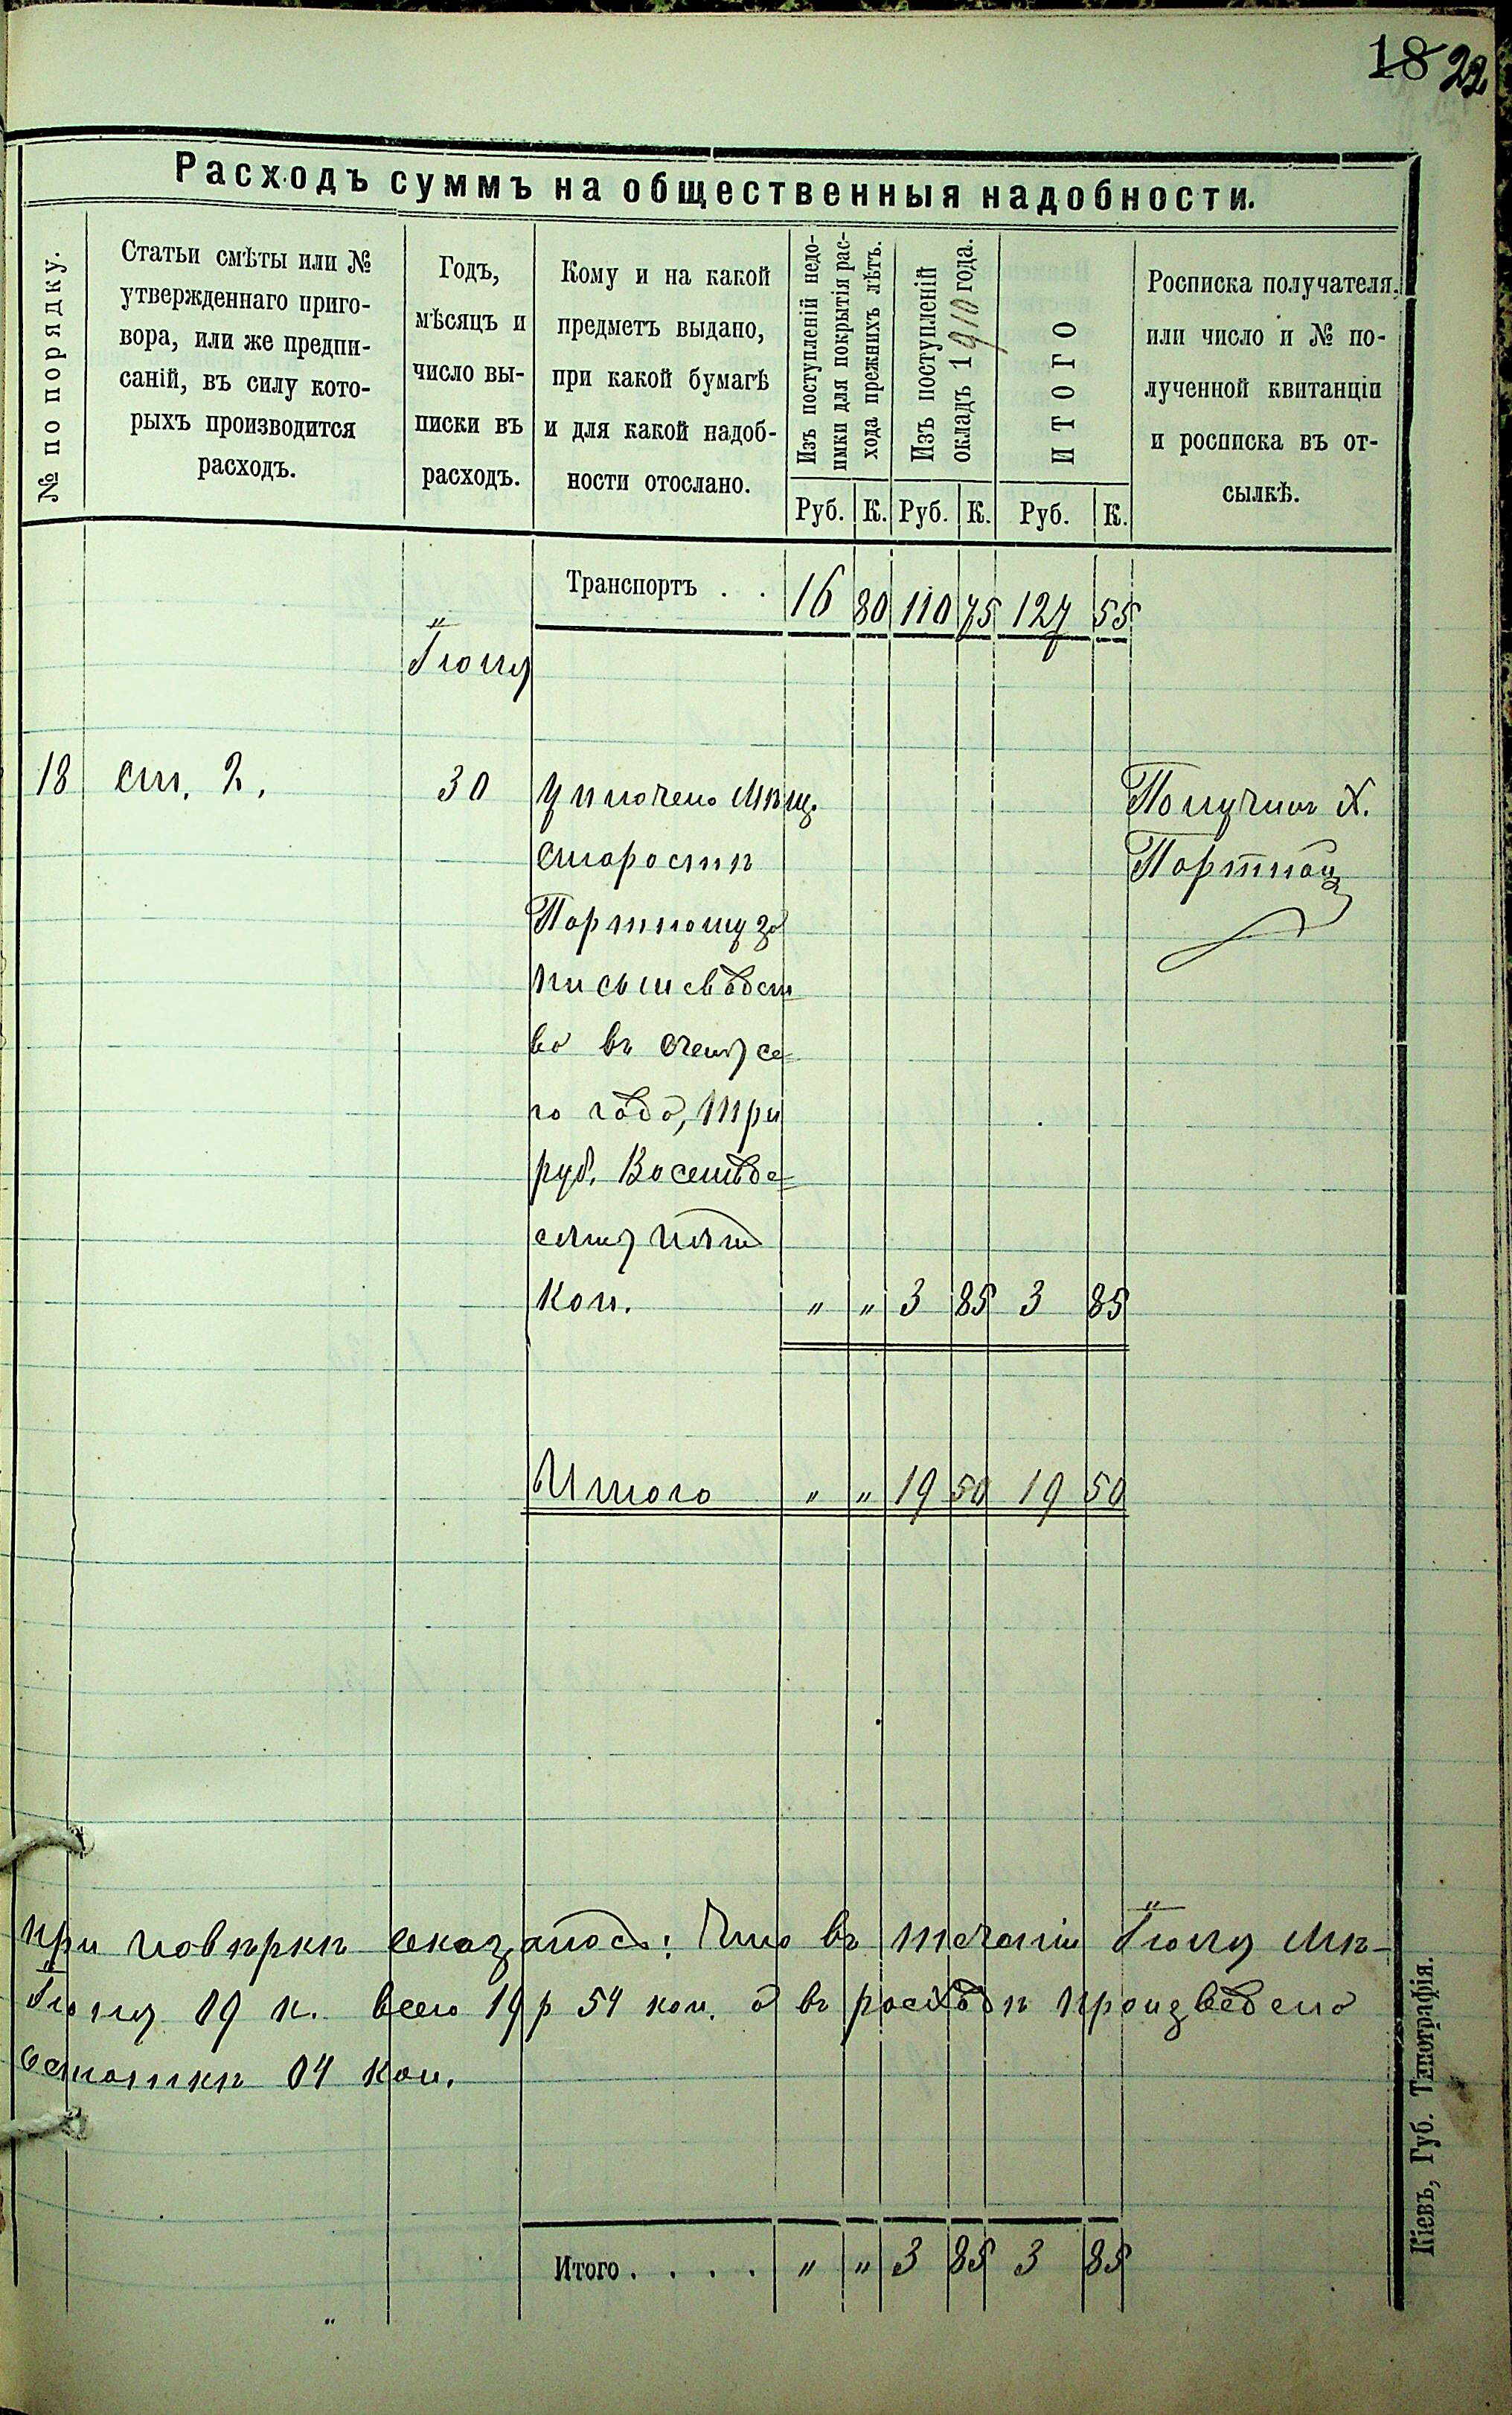 18 22
Расходъ суммъ на общественныя надобности.
№ по порядку.
Статьи смѣты или №
утвержденнаго приго-
вора, или же предпи-
саній, въ силу кото-
рыхъ производится
расходъ.
Годъ,
мѣсяцъ и
число вы-
писки въ
расходъ.
Кому и на какой
предметъ выдано,
при какой бумагѣ
и для какой надоб-
ности отослано.
Изъ поступленій недо-
имки для покрытія рас-
хода прежнихъ лѣтъ.
Изъ поступленій
окладъ 1910 года.
ИТОГО
Росписка получателя,
или число и № по-
лученной квитанціи
и росписка въ от-
сылкѣ.
Руб. К. Руб. К. Руб. К.
Транспортъ . . 16 80 110 75 127 55
18 ст. 2. 30 Уплочено Мѣщ. Получилъ Х.
старостѣ Портной
Портному за
письмоводст
во въ счетъ се=
го года, три
руб. восемьде=
сятъ пять
коп. " " 3 85 3 85
Итого " " 19 50 19 50
При повѣркѣ оказалось: что въ теченіи Мѣ-
19 р 54 коп. а въ расходъ произведено
остаткѣ 04 коп.
Итого. . . . " " 3 85 3 85
Кіевъ, Губ. Типографія.